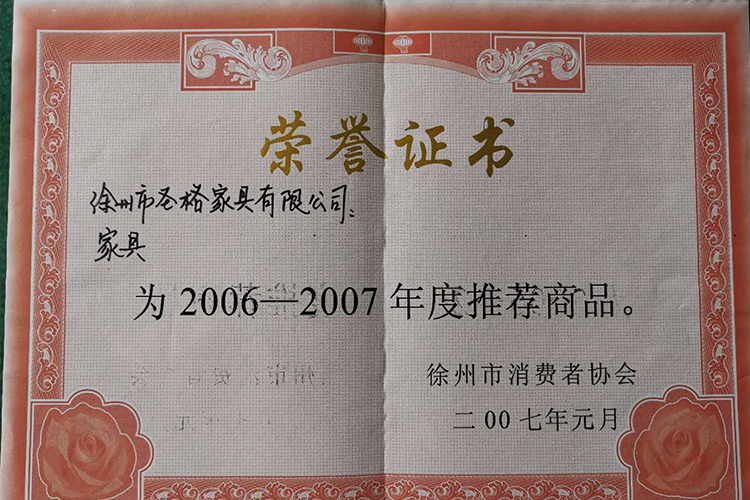 荣誉证书
徐州市圣格家具有限公司:
家具
为2006—2007年度推荐商品。
徐州市消费者协会
二00七年元月